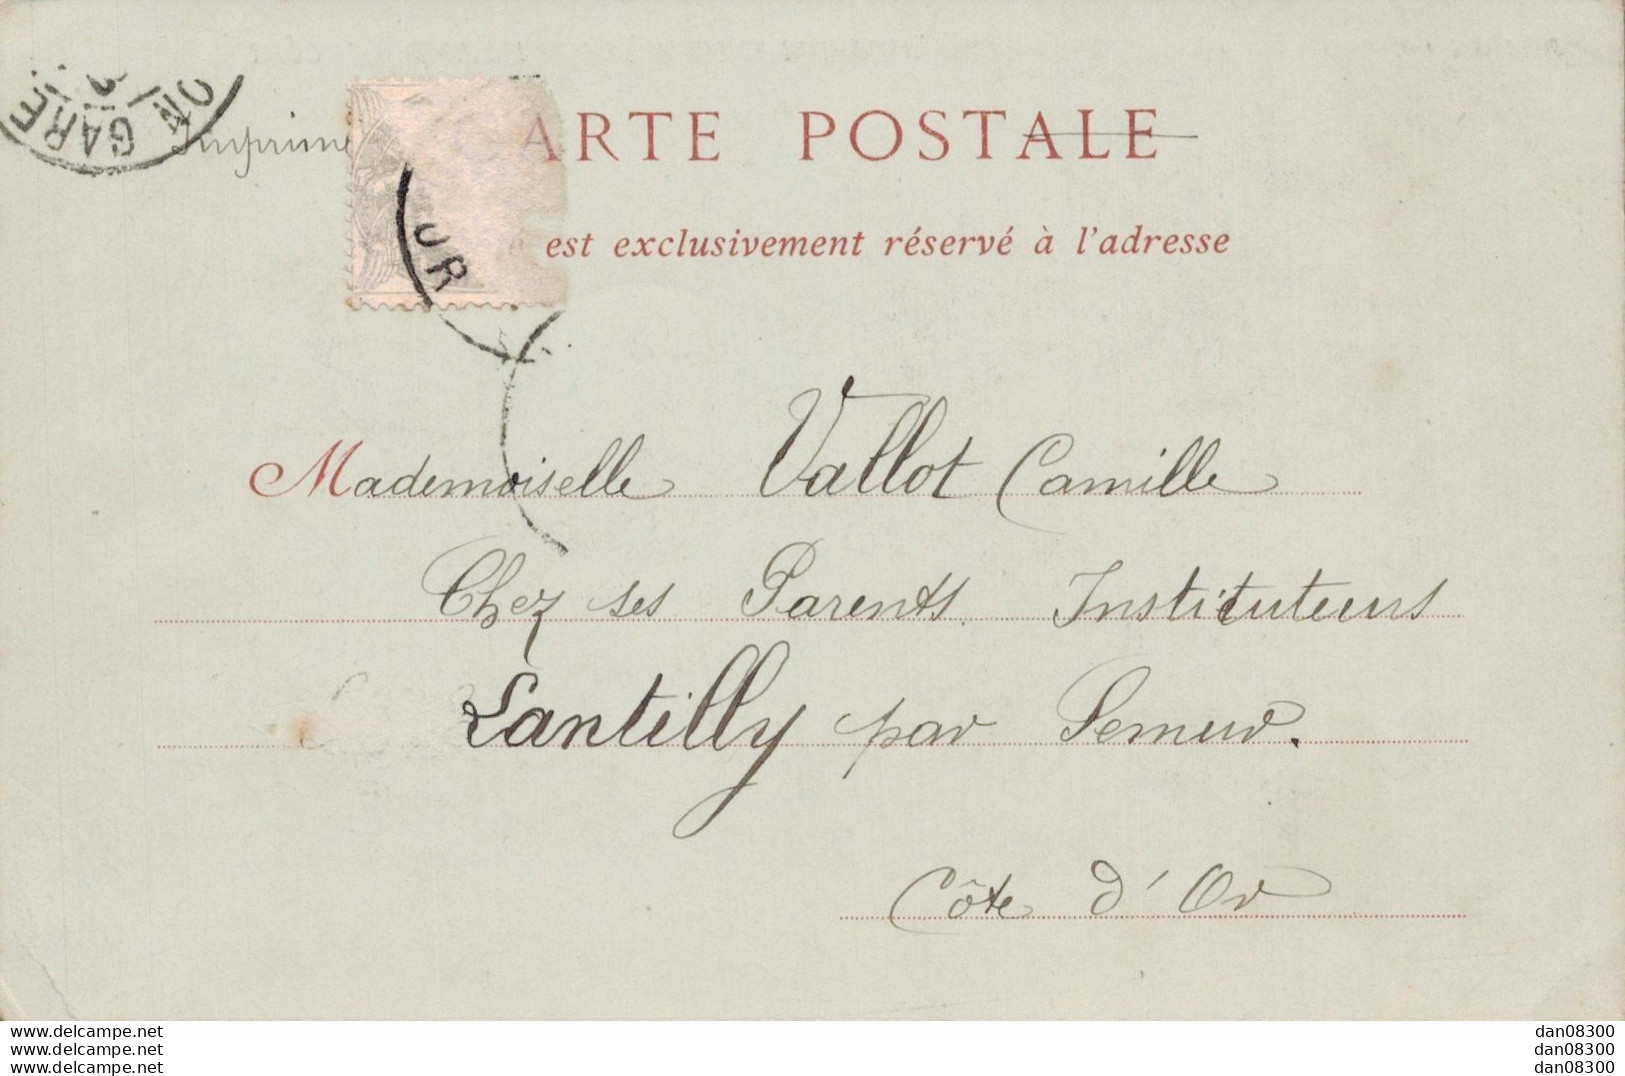 ON GARE
Imprimé CARTE POSTALE
UR
est exclusivement réservé à l'adresse
Mademoiselle Vallot Camille
Chez ses Parents Instituteurs
Lantilly par Semur.
Côte d'Or
www.delcampe.net dan08300
www.delcampe.net dan08300
www.delcampe.net dan08300